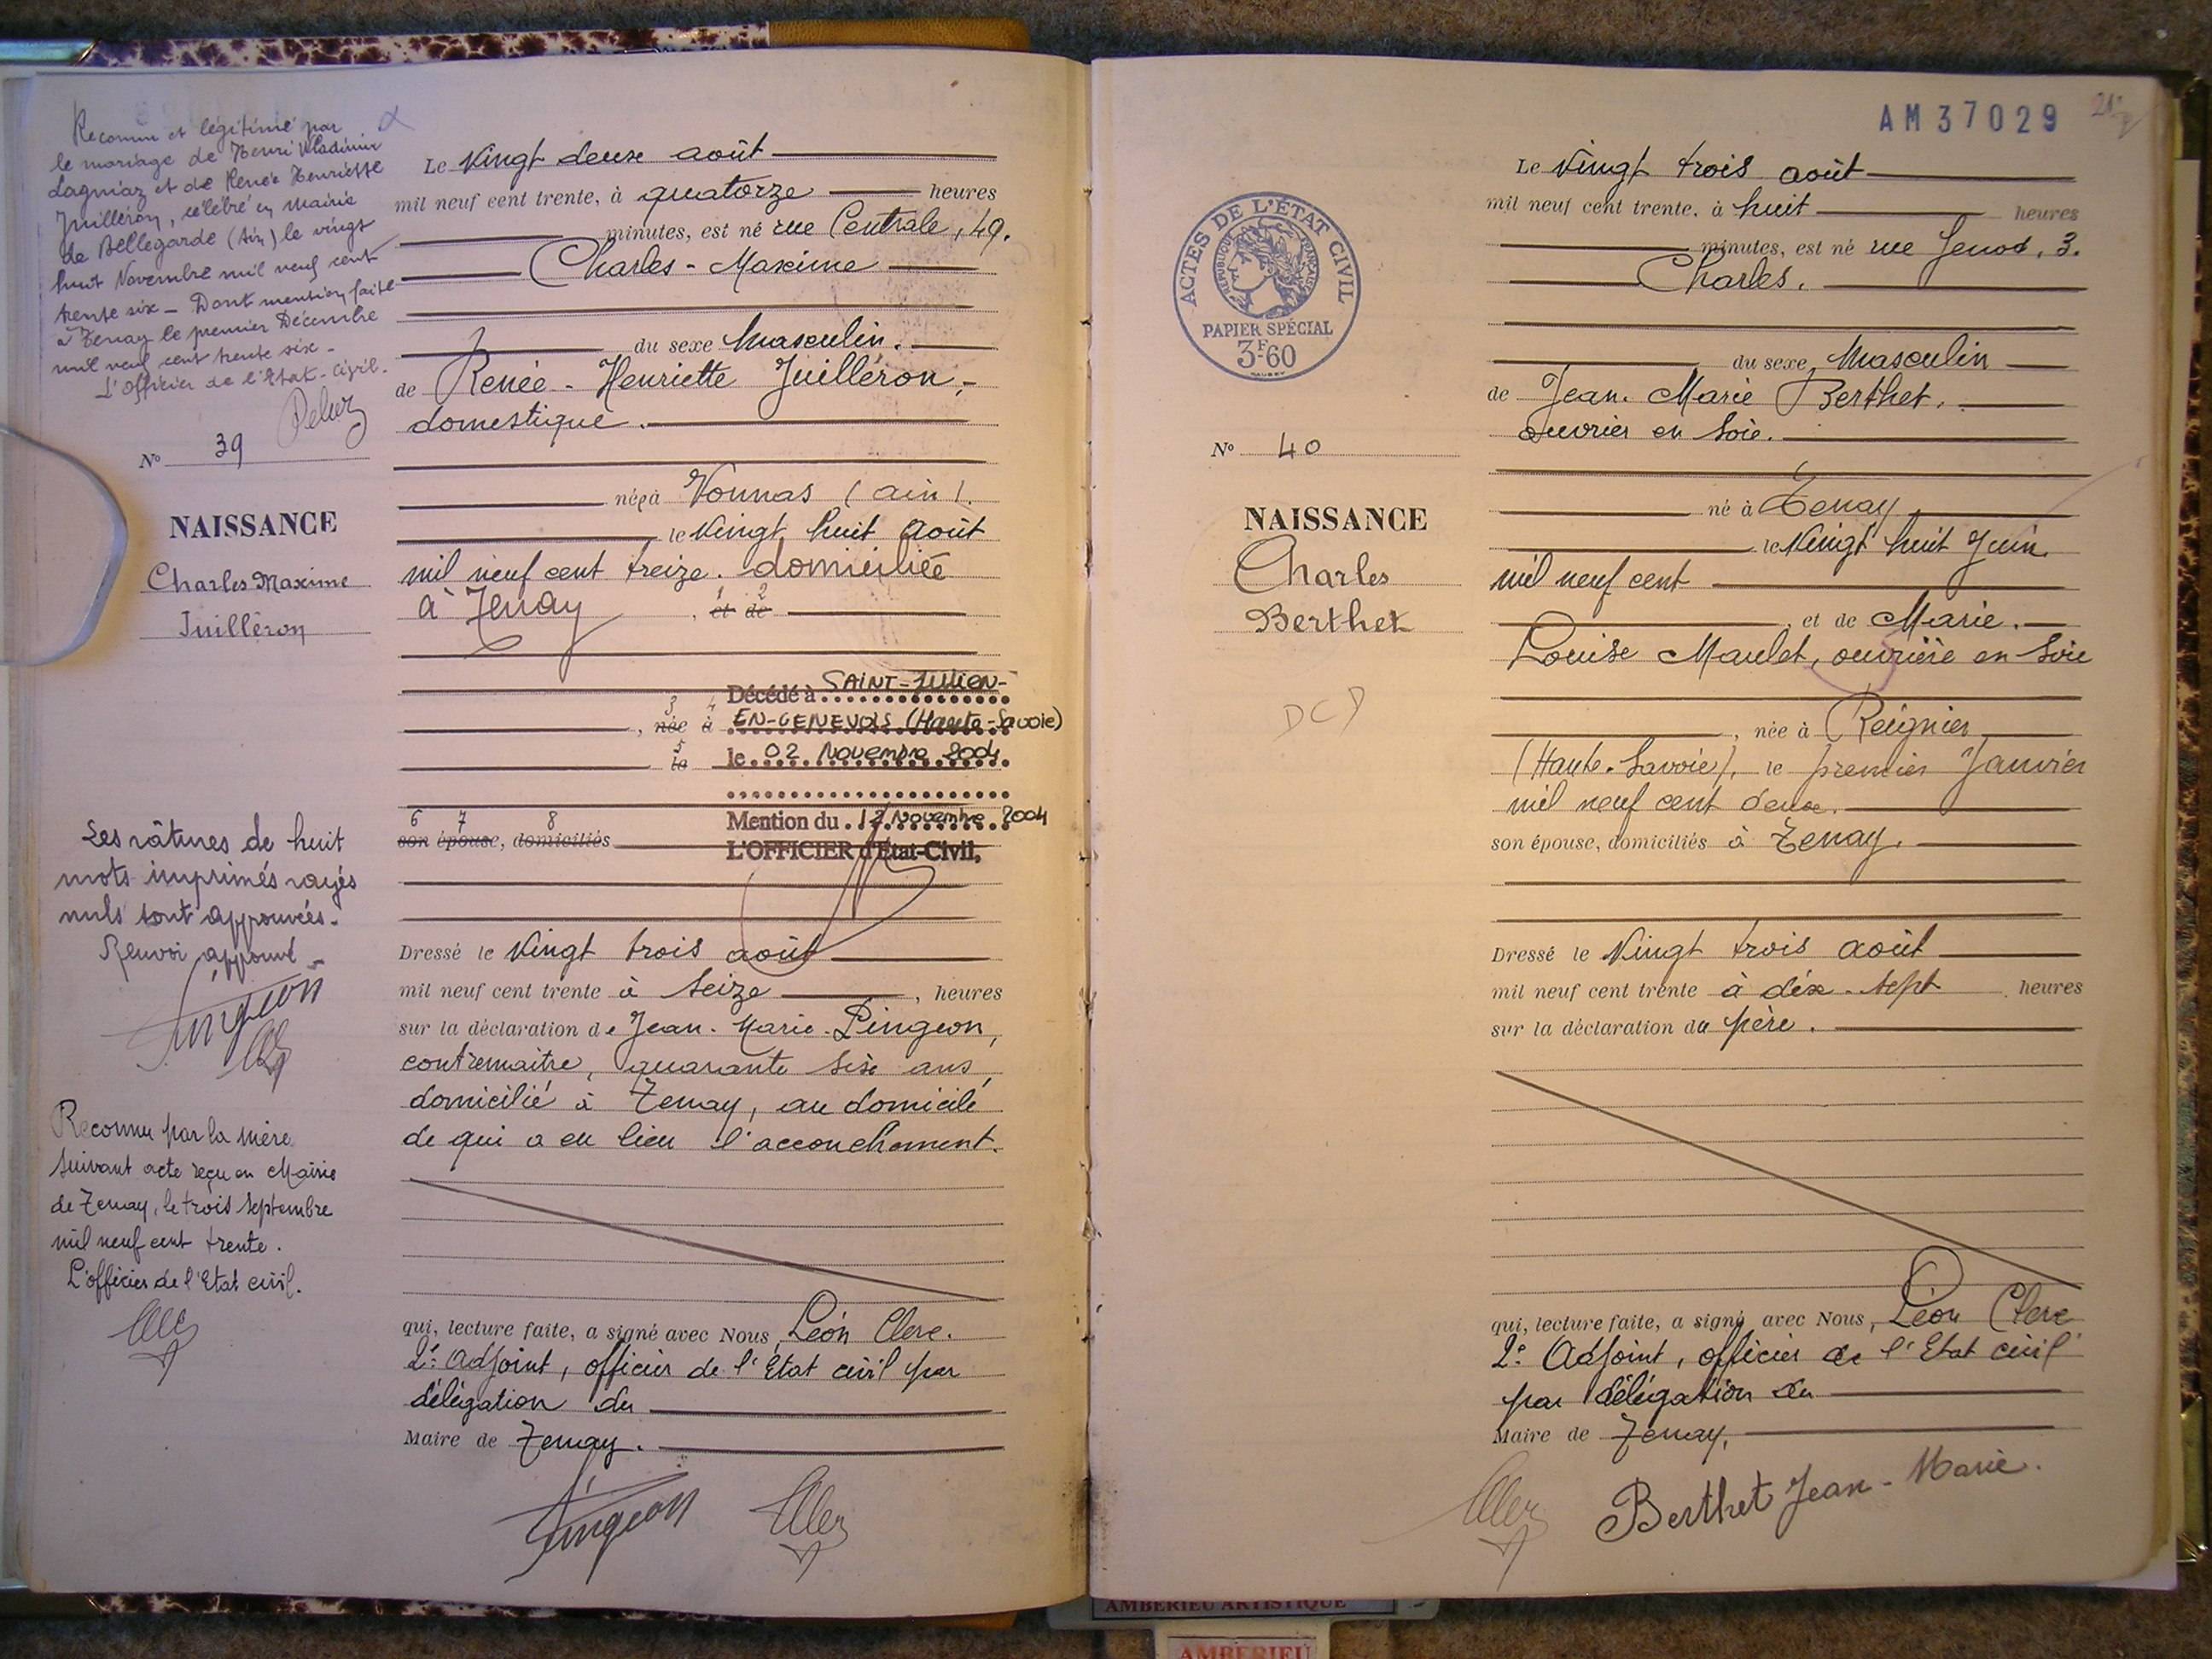 Reconnu et légitimé par
le mariage de Henri Wladimir
Lagniaz et de Renée Henriette
Juilléron, célébré en mairie
de Bellegarde (Ain) le vingt
huit Novembre mil neuf cent
trente six - Dont mention faite
à Tenay le premier Décembre
mil neuf cent trente six -
L'Officier de l'Etat-Civil.
N° 39
NAISSANCE
Charles Maxime
Juilléron
Les râtures de huit
mots imprimés rayés
nuls sont approuvées.
Renvoi approuvé -
Pingeon
Reconnu par la mère
suivant acte reçu en Mairie
de Tenay, le trois septembre
mil neuf cent trente.
L'officier de l'Etat civil.
Le vingt deux août
mil neuf cent trente, à quatorze heures
minutes, est né rue Centrale, 49.
Charles - Maxime
du sexe Masculin.
de Renée - Henriette Juilléron,
domestique.
née à Vonnas (ain).
le vingt huit août
mil neuf cent treize. domiciliée
à Tenay 1 2 et de
3 4 Décédé à SAINT-JULIEN-
, née à EN-GENEVOIS (Haute-Savoie)
5 le le 02 Novembre 2004
6 7 8 Mention du 12 Novembre 2004
son épouse, domiciliés L'OFFICIER d'Etat-Civil,
Dressé le vingt trois août
mil neuf cent trente à seize , heures
sur la déclaration de Jean - Marie - Pingeon,
contremaitre, quarante six ans,
domicilié à Tenay, au domicile
de qui a eu lieu l'accouchement.
qui, lecture faite, a signé avec Nous, Léon Clerc.
2e Adjoint, officier de l'Etat civil par
délégation du
Maire de Tenay.
Pingeon
AM37029
ACTES DE L'ÉTAT CIVIL
RÉPUBLIQUE FRANÇAISE
PAPIER SPÉCIAL
3F60
N° 40
NAISSANCE
Charles
Berthet
DCD
Le vingt trois août
mil neuf cent trente, à huit heures
minutes, est né rue Genod, 3.
Charles.
du sexe Masculin
de Jean - Marie Berthet,
ouvrier en soie.
né à Tenay
le vingt huit Juin
mil neuf cent
, et de Marie.
Louise Maulet, ouvrière en soie
, née à Reignier
(Haute-Savoie), le premier Janvier
mil neuf cent deux.
son épouse, domiciliés à Tenay.
Dressé le vingt trois août
mil neuf cent trente à dix-sept heures
sur la déclaration du père.
qui, lecture faite, a signé avec Nous, Léon Clerc
2e Adjoint, officier de l'Etat civil
par délégation du
Maire de Tenay.
Berthet Jean-Marie.
AMBERIEU ARTISTIQUE
AMBERIEU